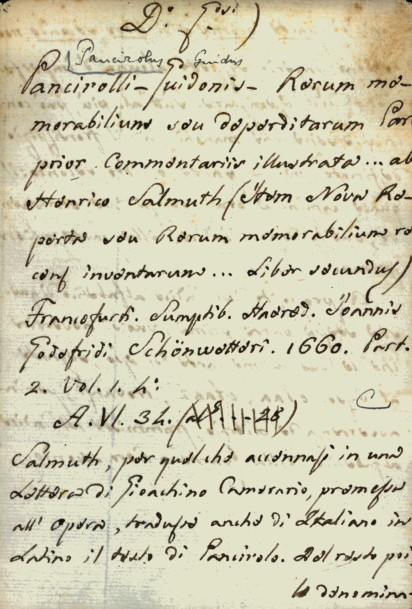 D.
Pancirolus Guidus
Pancirolli - Guidonis - Rerum me-
morabilium seu deperditarum Par
prior. Commentariis illustrata... ab
Henrico Salmuth (Item Nova Re-
perta seu Rerum memorabilium re
cens inventarum... Liber secundus)
Francofurti. Sumptib. Haered. Joannis
Godofridi Schönwetteri. 1660. Part.
2. Vol. 1. 4°.
A. VI. 34.
Salmuth, per quel che accennasi in una
Lettera di Gioachino Camerario, premessa
all' Opera, tradusse anche di Italiano in
Latino il testo di Pancirolo. Del resto poi
le denomina-